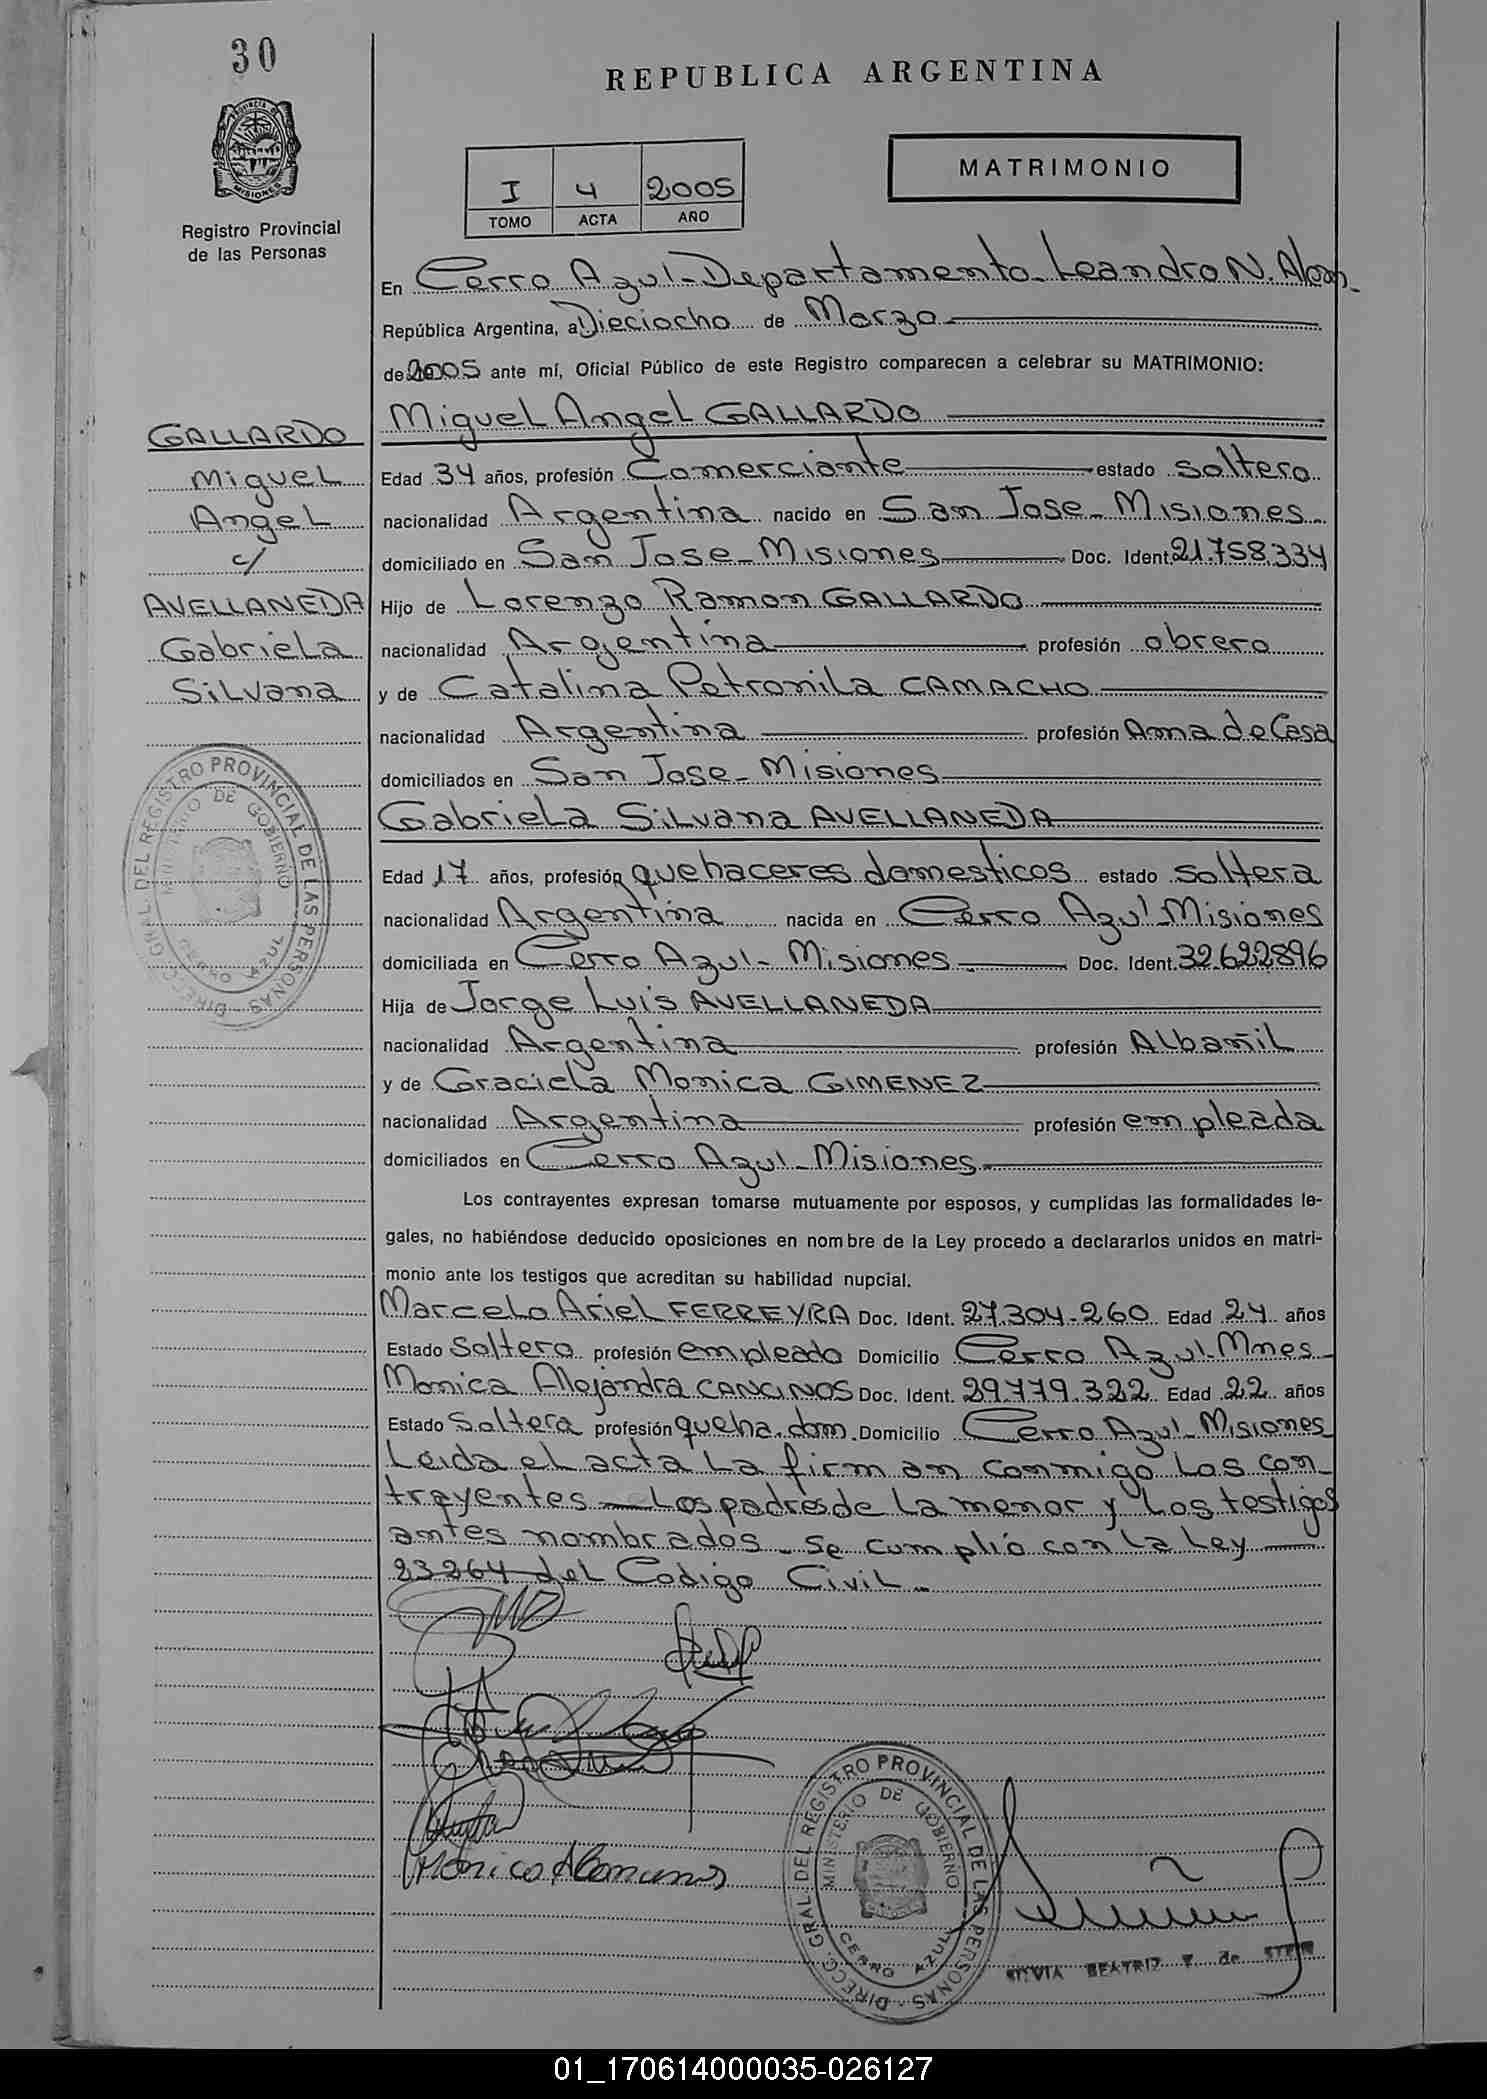 30
REPUBLICA ARGENTINA
PROVINCIA DE
MISIONES
Registro Provincial
de las Personas
MATRIMONIO
I 4 2005
TOMO ACTA AÑO
En Cerro Azul-Departamento-Leandro N. Alem-
República Argentina, a Dieciocho de Marzo
de 2005 ante mí, Oficial Público de este Registro comparecen a celebrar su MATRIMONIO:
Miguel Angel GALLARDO
GALLARDO
Miguel
Angel
c/
AVELLANEDA
Gabriela
Silvana
Edad 34 años, profesión Comerciante estado soltero
nacionalidad Argentina nacido en San Jose-Misiones
domiciliado en San Jose-Misiones Doc. Ident. 21.758.334
Hijo de Lorenzo Ramon GALLARDO
nacionalidad Argentina profesión obrero
y de Catalina Petronila CAMACHO
nacionalidad Argentina profesión Ama de Casa
domiciliados en San Jose-Misiones
Gabriela Silvana AVELLANEDA
Edad 17 años, profesión quehaceres domesticos estado soltera
nacionalidad Argentina nacida en Cerro Azul-Misiones
domiciliada en Cerro Azul-Misiones Doc. Ident. 32.622.896
Hija de Jorge Luis AVELLANEDA
nacionalidad Argentina profesión Albañil
y de Graciela Monica GIMENEZ
nacionalidad Argentina profesión empleada
domiciliados en Cerro Azul-Misiones
Los contrayentes expresan tomarse mutuamente por esposos, y cumplidas las formalidades le-
gales, no habiéndose deducido oposiciones en nombre de la Ley procedo a declararlos unidos en matri-
monio ante los testigos que acreditan su habilidad nupcial.
Marcelo Ariel FERREYRA Doc. Ident. 27.304.260 Edad 24 años
Estado Soltero profesión empleado Domicilio Cerro Azul-Mnes
Monica Alejandra CANCINOS Doc. Ident. 29.779.322 Edad 22 años
Estado Soltera profesión queha. dom. Domicilio Cerro Azul-Misiones
Leida el acta la firman conmigo los con-
trayentes-Los padres de la menor y los testigos
antes nombrados-Se cumplió con la Ley
23264 del Codigo Civil-
DIRECC. GRAL. DEL REGISTRO PROVINCIAL DE LAS PERSONAS
MINISTERIO DE GOBIERNO
CERRO AZUL
DIRECC. GRAL. DEL REGISTRO PROVINCIAL DE LAS PERSONAS
MINISTERIO DE GOBIERNO
CERRO AZUL
SILVIA BEATRIZ de
01_170614000035-026127